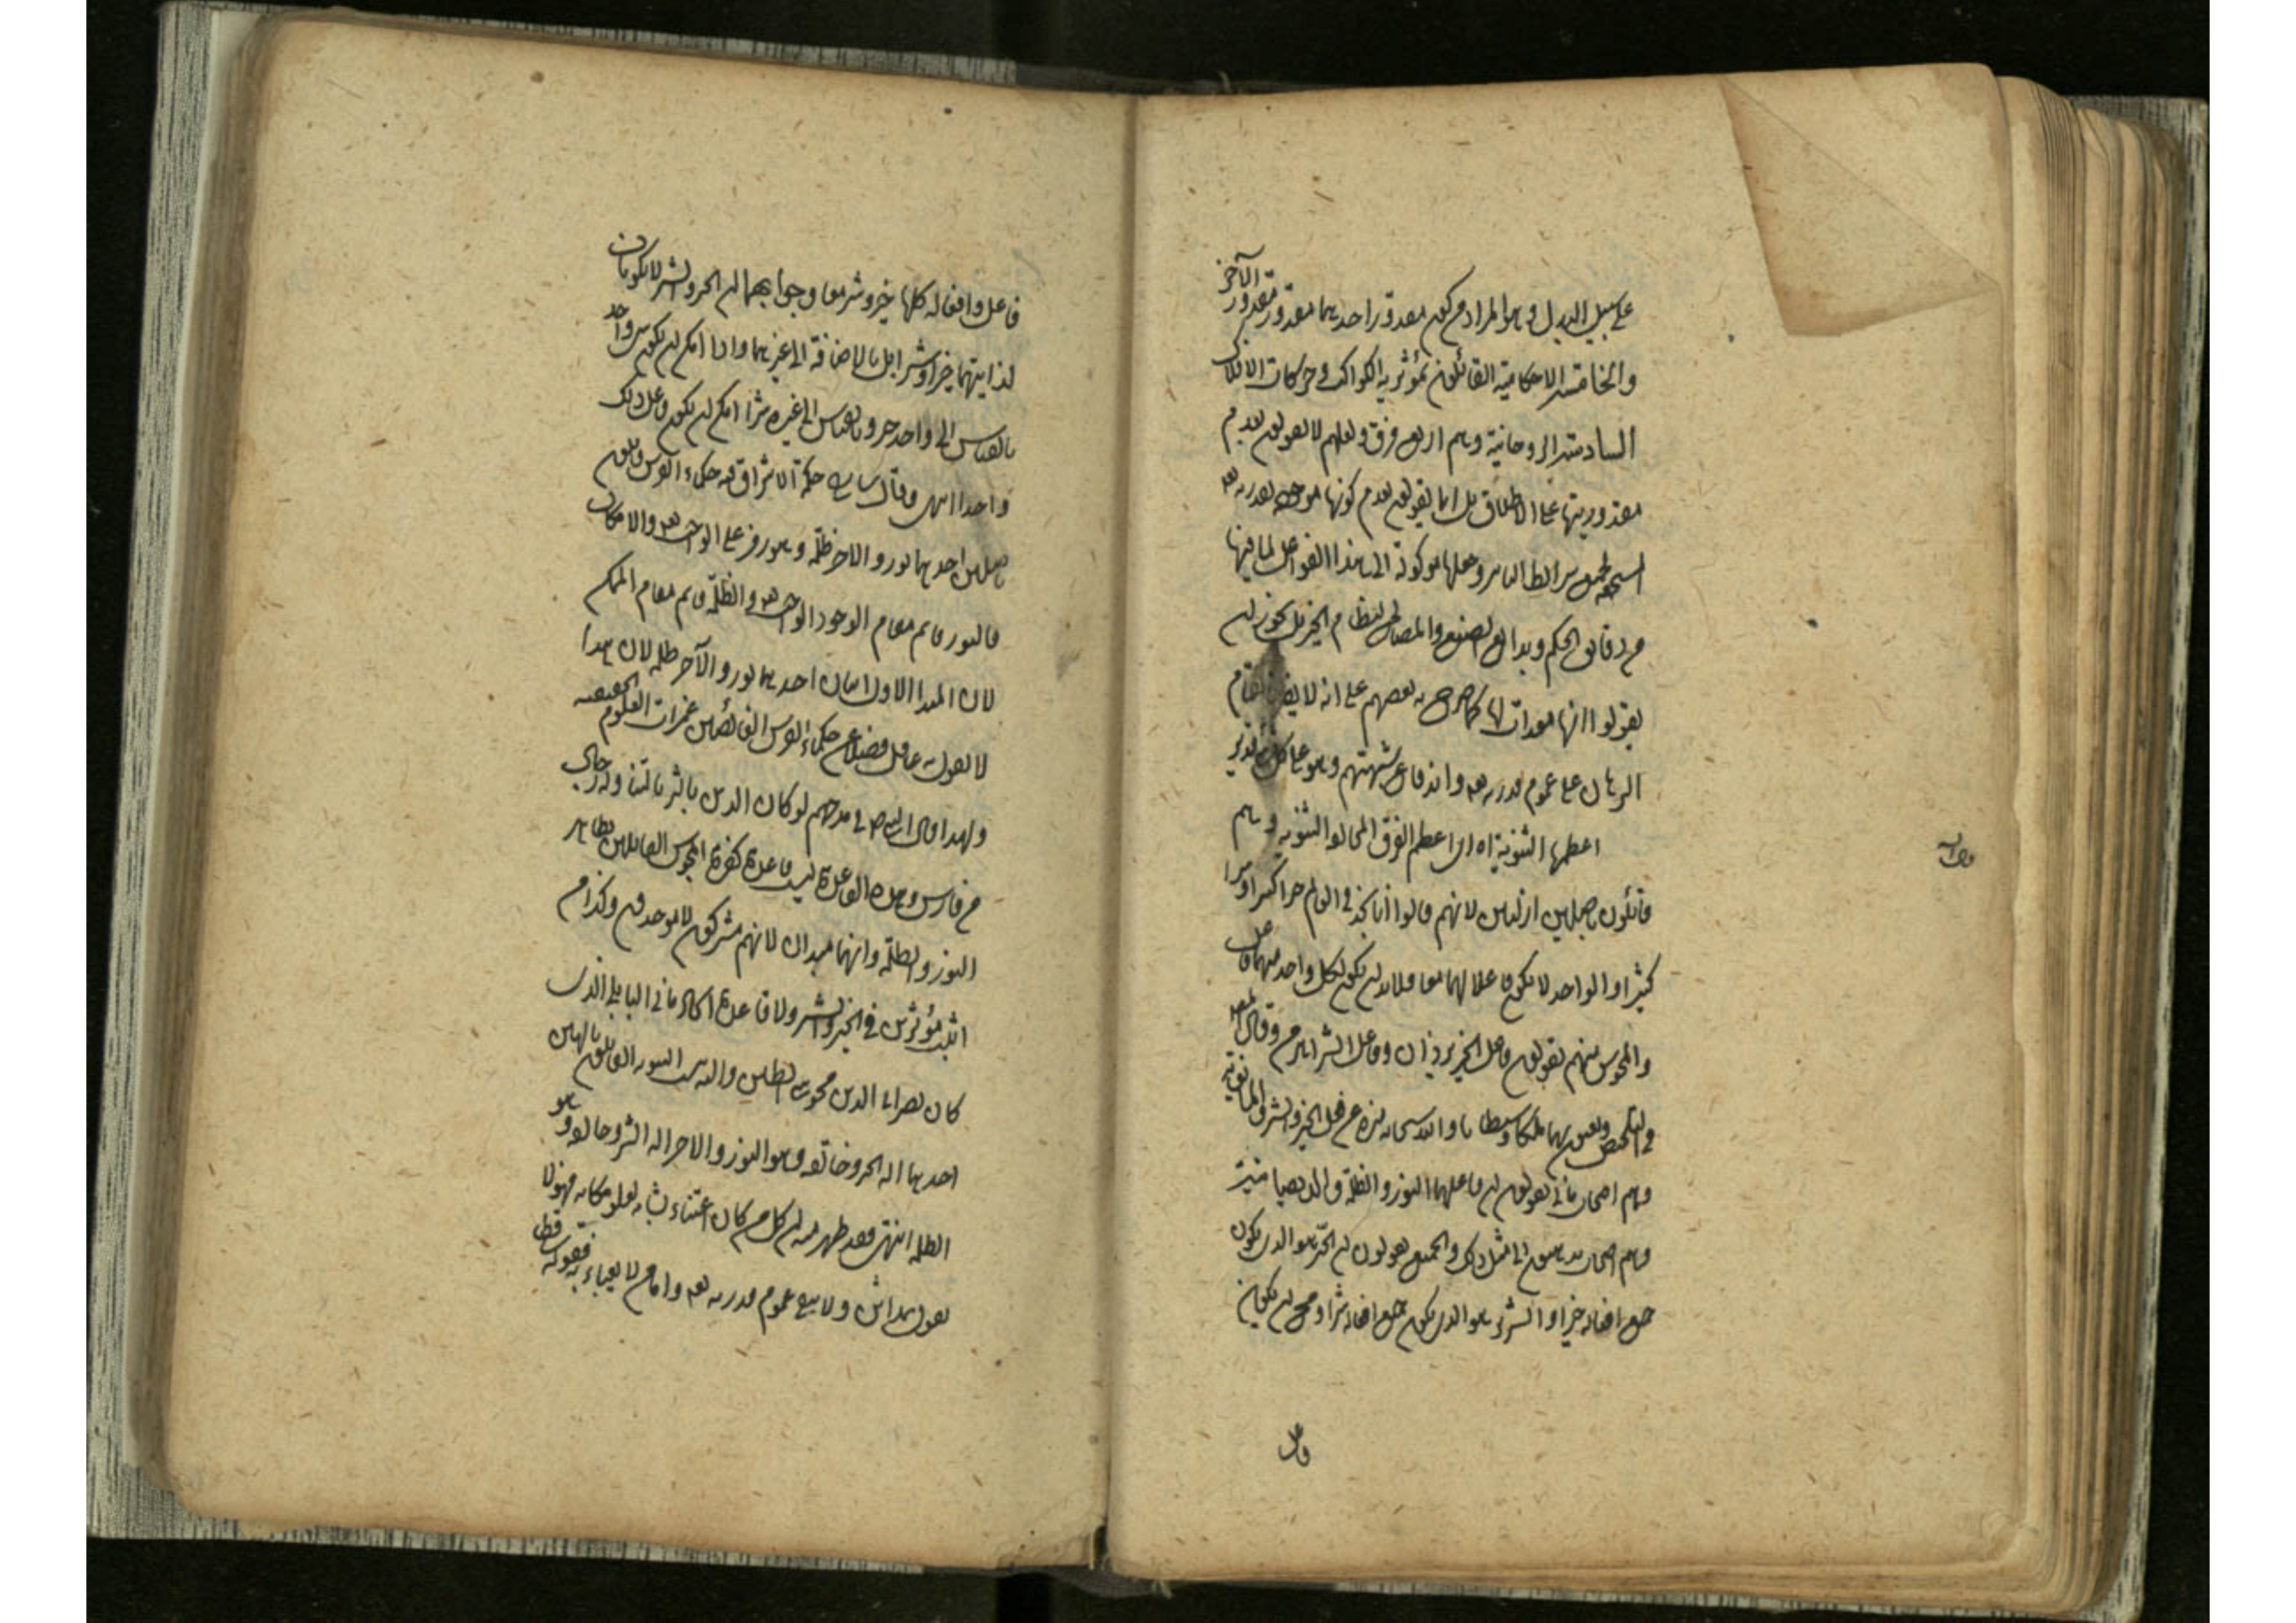 على سبيل البدل وهو المراد من كون مقدور احدهما مقدور الآخر
والخامسة الاحكامية القائلون بمؤثرية الكواكب وحركات الافلاك
السادسة الروحانية وهم اربع فرق ولعلهم لا يقولون بعدم
مقدوريتها على الاطلاق بل انما يقولون بعدم كونها موجودة بقدرته تعه
لجميع شرائط التأثير وجعلها موكولة الى هذا الفواعل لما فيها
من دقائق الحكم وبدائع الصنع والمصالح لنظام الخير بل يجوز ان
يقولوا انها معدات لها كما صرح به بعضهم على انه لا يضر بتمام
البرهان على عموم قدرته تعه واندفاع شبهتهم وهو على كل تقدير
اعظمها الثنوية اه اى اعظم الفرق المخالفوا الثنوية وهم
قائلون باصلين ازليين لانهم قالوا انا نجد في العالم خيرا كثيرا وشرا
كثيرا والواحد لا يكون فاعلا لهما معا فلا بد ان يكون لكل واحد منهما فاعل
والمجوس منهم يقولون فاعل الخير يزدان وفاعل الشر اهرمن وقال
في التلخيص ويعنون بهما ملكا وشيطانا والله سبحانه منزه عن فعل الخير والشر والمانوية
وهم اصحاب مانى يقولون ان فاعلهما النور والظلمة والديصانية
وهم اصحاب ديصان الى مثل ذلك والجميع يقولون ان الخير هو الذى يكون
جميع افعاله خيرا والشرير هو الذى يكون جميع افعاله شرا ومح ان يكون
فاعل
فاعل وافعاله كلها خير وشر معا وجوابهما ان الخير والشر لا يكونان
لذاتيهما خيرا وشرا بل بالاضافة الى غيرهما واذا امكن ان يكون شئ واحد
بالقياس الى واحد خيرا وبالقياس الى غيره شرا امكن ان يكون فاعل ذلك
واحدا انتهى وقال شارح حكمة الاشراق حكماء الفرس قائلون
باصلين احدهما نور والاخر ظلمة وهو رمز على الوجوب والامكان
فالنور قائم مقام الوجود الواجب والظلمة قائم مقام الممكن
لان المبدا الاول اثنان احدهما نور والآخر ظلمة لان هذا
لا يقوله عاقل فضلا عن حكماء الفرس الخائضين غمرات العلوم الحقيقية
ولهذا قال النبي ص في مدحهم لو كان الدين بالثريا لتناوله رجال
من فارس وهذه القاعدة ليست قاعدة كفرة المجوس القائلين بظاهر
النور والظلمة وانهما مبدأن لانهم مشركون لا موحدون وكذا من
اثبت مؤثرين في الخير والشر ولا قاعدة الحاد مانى البابلى الذى
كان نصرانى الدين مجوسى الطين واليه ينسب الثنوية القائلون بالهين
احدهما اله الخير وخالقه وهو النور والاخر اله الشر وخالقه وهو
الظلمة انتهى فقد ظهر منه ان كل من كان اعتناء بشانه لعلو مكانه فهو لا
يقول بهذا الشئ ولا ينفى عموم قدرته تعه واما من لا يعباء به فقوله ساقط